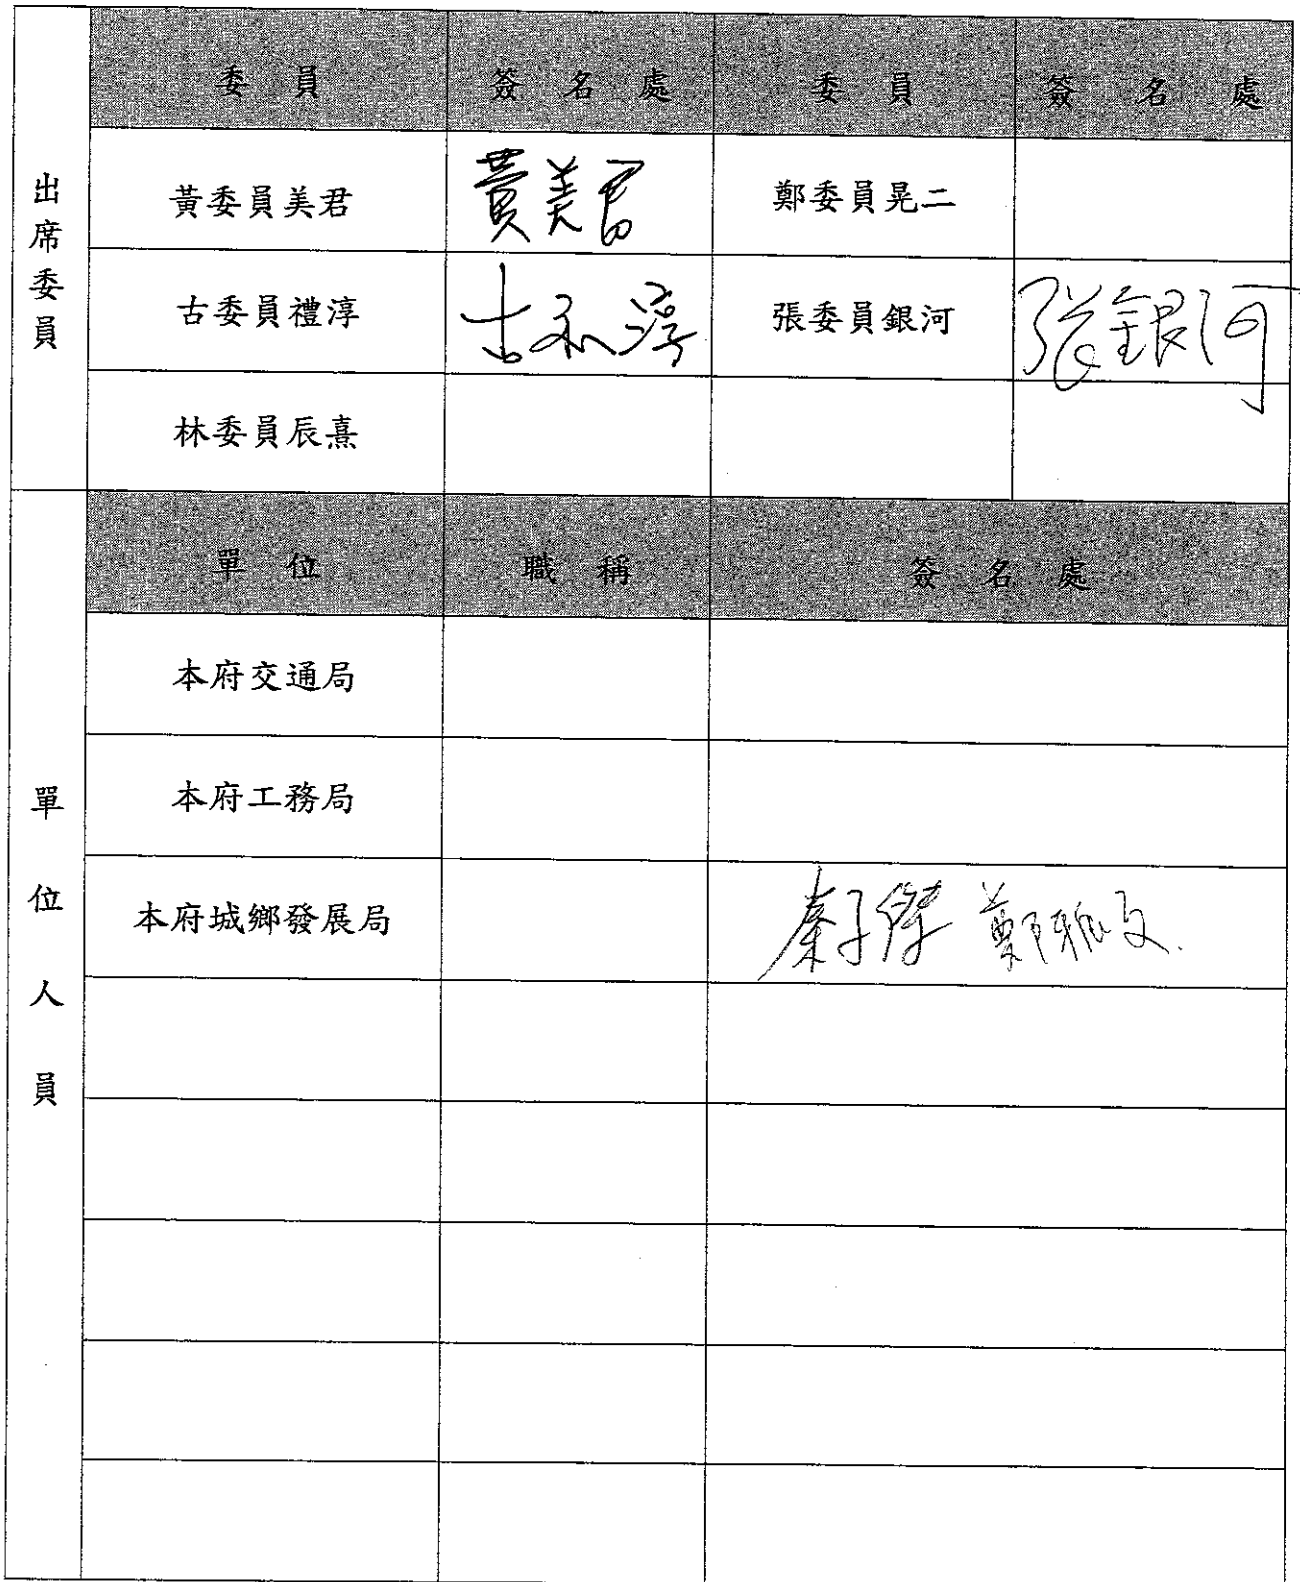 出席委員
委員 簽名處 委員 簽名處
黃委員美君 黃美君 鄭委員晃二
古委員禮淳 古礼淳 張委員銀河 張銀河
林委員辰熹
單位人員
單位 職稱 簽名處
本府交通局
本府工務局
本府城鄉發展局 秦子傑 鄭雅文